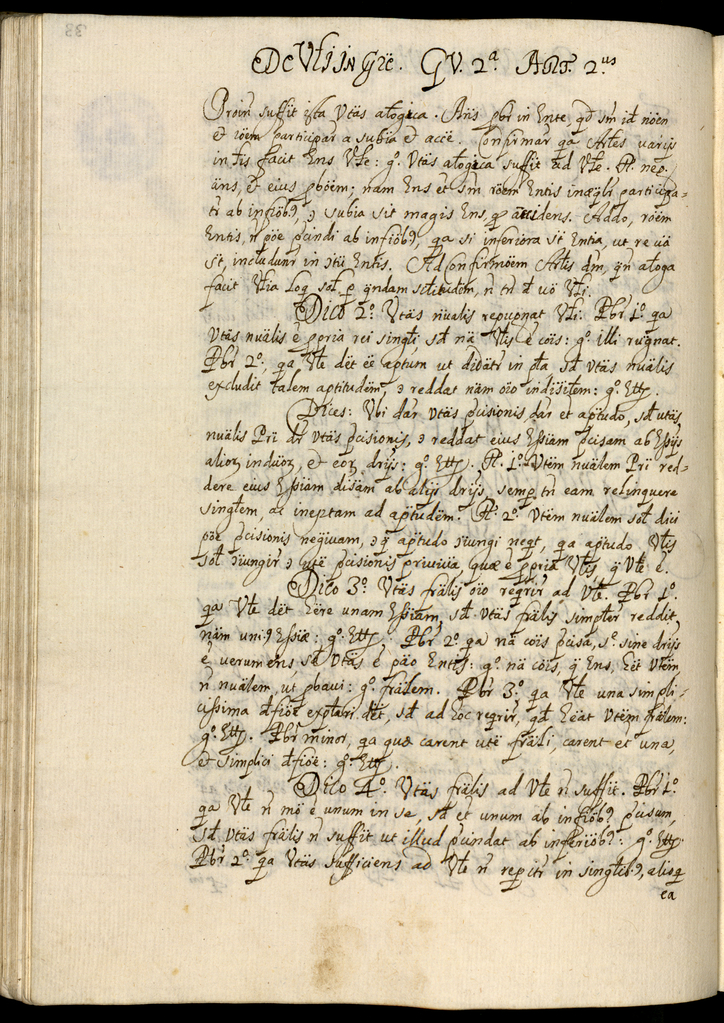 De Vlĩ in Gñe. QV. 2ª. Art. 2.us
Proin suffit ista Vtãs alogica. Añs pbr in Ente, qd sm id nõen
et rõem participar a subia et accẽ. Confirmar qa Artes varijs
in ñs facit Ens Vle: gº. Vtãs alogica suffit ad Vle. R. neg.
ãns, et eius pbõem; nam Ens et sm rõem Entis inæqlr participa-
tr ab infiõb9, ɔ subia sit magis Ens, q accidens. Addo, rõem
Entis, ñ põe pcindi ab infiõb9, qa si inferiora st Entia, ut re uã
st, includunr in ɔtũ Entis. Ad Confirmõem Artis dm, qñ aloga
facit Vlia Log sol p qndam silitudem, ñ tñ d uõ Vli.
Dico 2º. Vtãs nũalis repugnat Vli. Pbr 1º. qa
Vtãs nũalis ẽ ppria rei singli sd nã Vlis ẽ cõis: gº. illi rugnat.
Pbr 2º. qa Vle det ẽe aptum ut diuãtr in pla sd Vtãs nũalis
excludit talem aptitudẽm, ɔ reddat nãm oĩo indisiẽm: gº. Ett.
Dices: Vbi dar Vtãs pcisionis dar et aptudo, sd utãs
nũalis Pri dr Vtãs pcisionis, ɔ reddat eius Essiam pcisam ab Essijs
alior induor, et eor drijs: gº. Ett. R. 1º. Vtẽm nũalem Pri red-
dere eius Essiam disãm ab alijs drijs, semp tñ eam relinquere
singlẽm, ac ineptam ad aptudẽm. R. 2º. Vtẽm nũalem sol dici
põe pcisionis negiuam, ɔ q aptudo ɔiungi neqt, qa aptudo Vlis
sol ɔiungir ɔ utẽ pcisionis priuiua quæ ẽ ppria Vlis, q Vle ẽ.
Dico 3º. Vtãs frãlis oĩo reqrir ad Vle. Pbr 1º.
qa Vle det hẽre unam Essiam, sd Vtãs frãlis simplr reddit
nãm uni9 Essiæ: gº. Ett. Pbr 2º. qa nã cõis pcisa, sº. sine drijs
ẽ verum ens, sd Vtãs ẽ pão Entis: gº. nã cõis, q Ens, hẽt Vtẽm
ñ nũalem, ut pbaui: gº. frãlem. Pbr 3º. qa Vle una simpli-
cissima dfiõe explari det, sd ad hoc reqrir, qd hẽat Vtẽm frãlem:
gº. Ett. Pbr minor, qa quæ carent utẽ frãli, carent et una,
et simplici dfiõe: gº. Ett.
Dico 4º. Vtãs frãlis ad Vle ñ suffit. Pbr 1º.
qa Vle ñ mõ ẽ unum in se, sd et unum ab infiõb9 pcisum,
sd Vtãs frãlis ñ suffit ut illud pcindat ab inferiõb9: gº. Ett.
Pbr 2º. qa Vtãs sufficiens ad Vle ñ reperitr in singlib9, alioq
ea